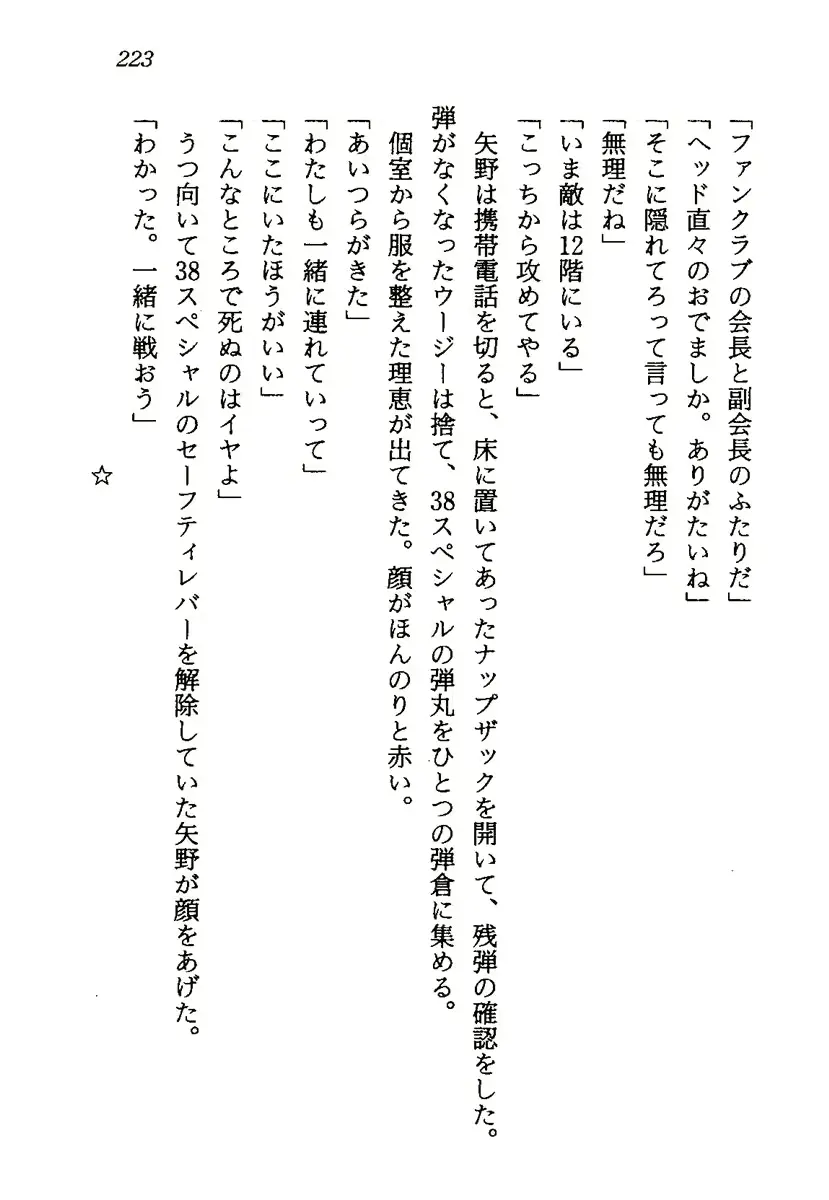 223
「ファンクラブの会長と副会長のふたりだ」
「ヘッド直々のおでましか。ありがたいね」
「そこに隠れてろって言っても無理だろ」
「無理だね」
「いま敵は12階にいる」
「こっちから攻めてやる」
矢野は携帯電話を切ると、床に置いてあったナップザックを開いて、残弾の確認をした。
弾がなくなったウージーは捨て、38スペシャルの弾丸をひとつの弾倉に集める。
個室から服を整えた理恵が出てきた。顔がほんのりと赤い。
「あいつらがきた」
「わたしも一緒に連れていって」
「ここにいたほうがいい」
「こんなところで死ぬのはイヤよ」
うつ向いて38スペシャルのセーフティレバーを解除していた矢野が顔をあげた。
「わかった。一緒に戦おう」
☆